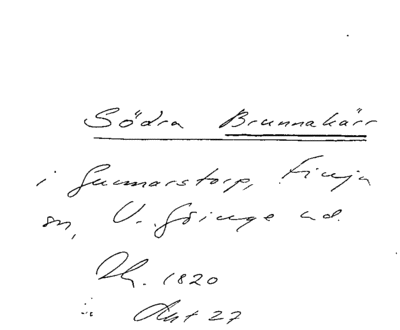 Södra Brunnakärr
i Gunnarstorp, Finja
sn, V. Göinge hd.
1820
Akt 27